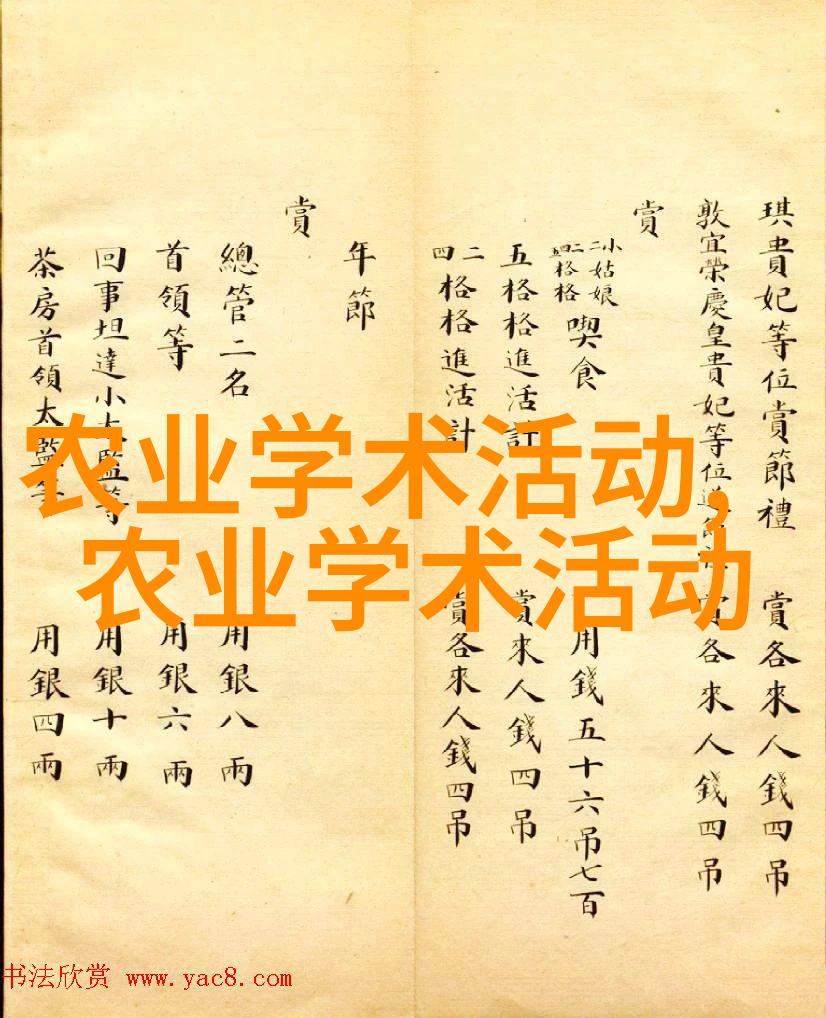 琪貴妃等位賞節禮 賞各來人錢四吊
敦宜榮慶皇貴妃等位進節禮 賞各來人錢四吊
賞
小姑娘
二二格格
四格格
喫食 用錢五十六吊七百
五格格進活計 賞來人錢四吊
二四格格進活計 賞各來人錢四吊
年節
賞
總管二名 用銀八兩
首領等 用銀六兩
回事坦達小太監等 用銀十兩
茶房首領太監等 用銀四兩
农业学术活动,
农业学术活动
书法欣赏 www.yac8.com